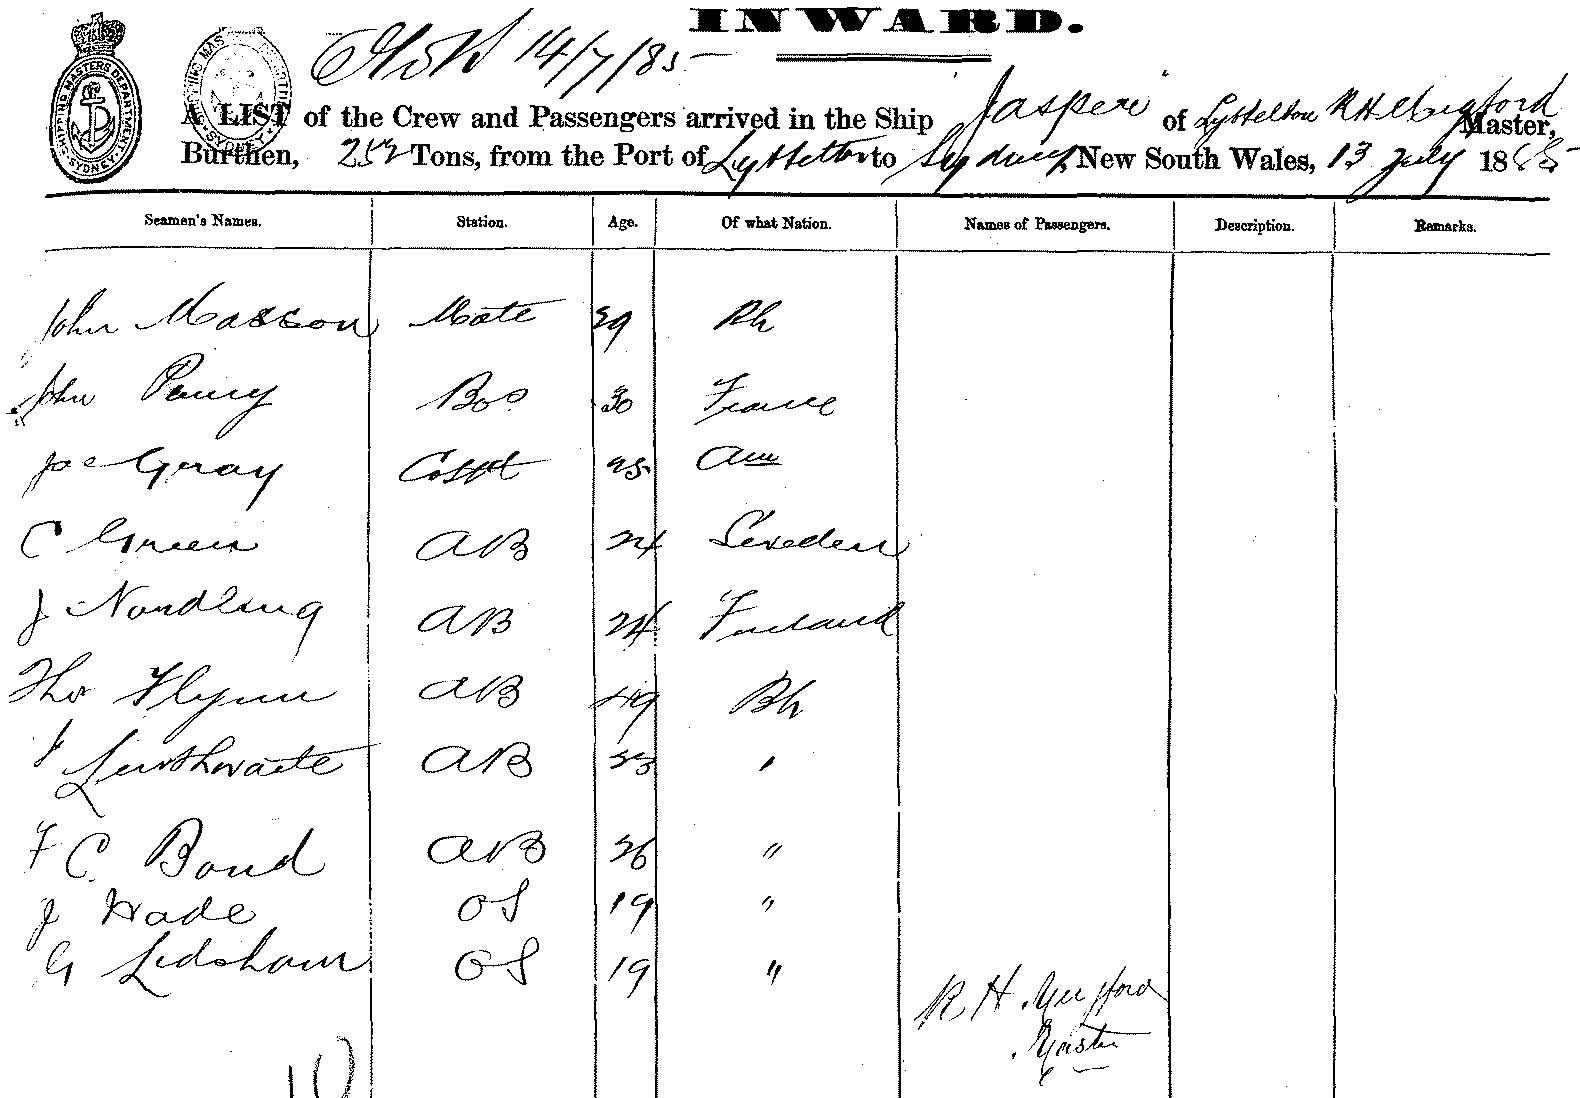 INWARD.
14/7/85
SHIPPING MASTERS DEPARTMENT SYDNEY
A LIST of the Crew and Passengers arrived in the Ship "Jasper" of Lyttelton R H Mugford Master,
Burthen, 252 Tons, from the Port of Lyttelton to Sydney, New South Wales, 13 July 1885
Seamen's Names. Station. Age. Of what Nation. Names of Passengers. Description. Remarks.
John Masson Mate 29
John Bos 30 France
Gray 25 Am
C Green AB 24 Sweden
J Nordling AB 24 Finland
Tho Flynn AB 49 Bh
J Lewthwaite AB 23 "
F C Bond AB 26 "
J Wade OS 19 "
G Ledsham OS 19 "
R H Mugford
Master
10